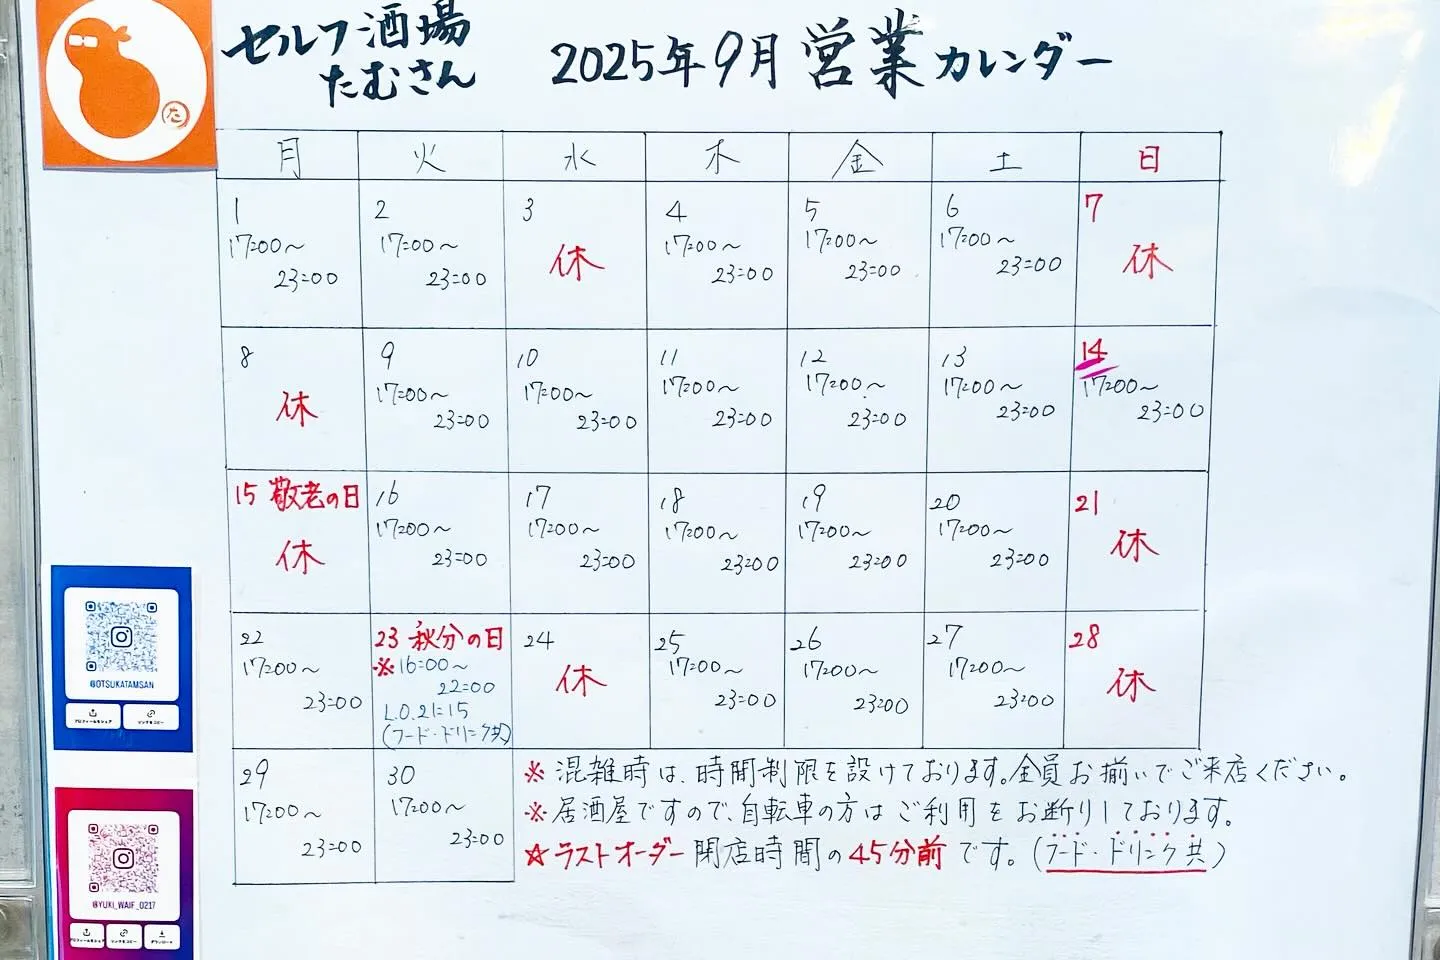 セルフ酒場
たむさん
2025年9月営業カレンダー
た
月 火 水 木 金 土 日
1 17:00～ 23:00
2 17:00～ 23:00
3 休
4 17:00～ 23:00
5 17:00～ 23:00
6 17:00～ 23:00
7 休
8 休
9 17:00～ 23:00
10 17:00～ 23:00
11 17:00～ 23:00
12 17:00～ 23:00
13 17:00～ 23:00
14 17:00～ 23:00
15 敬老の日 休
16 17:00～ 23:00
17 17:00～ 23:00
18 17:00～ 23:00
19 17:00～ 23:00
20 17:00～ 23:00
21 休
22 17:00～ 23:00
23 秋分の日
※16:00～
22:00
L.O.21:15
(フード・ドリンク共)
24 休
25 17:00～ 23:00
26 17:00～ 23:00
27 17:00～ 23:00
28 休
29 17:00～ 23:00
30 17:00～ 23:00
※混雑時は、時間制限を設けております。全員お揃いでご来店ください。
※居酒屋ですので、自転車の方はご利用をお断りしております。
☆ラストオーダー閉店時間の45分前です。(フード・ドリンク共)
@OTSUKATAMSAN
プロフィールをシェア
リンクをコピー
@YUKI_WAIF_0217
プロフィールをシェア
リンクをコピー
ダウンロード